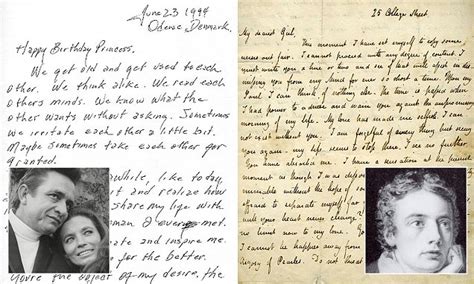 June 23 1994
Odense, Denmark.
Happy Birthday Princess,
We get old and get used to each
other. We think alike. We read each
others minds. We know what the
other wants without asking. Sometimes
we irritate each other a little bit.
Maybe sometimes take each other for
granted.
while, like today
and realize how
share my life with
I ever met.
You're the object of my desire, the
25 College Street
My dearest Girl,
This moment I have set myself to copy some
verses out fair. I cannot proceed with any degree of content. I
must write you a line or two and see if that will assist in dis
missing you from my Mind for ever so short a time. Upon my
Soul I can think of nothing else. The time is passed when
I had power to advise and warn you against the unpromising
morning of my life. My love has made me selfish. I can
not exist without you. I am forgetful of every thing but seeing
you again. my life seems to stop there. I see no further.
You have absorb'd me. I have a sensation at the present
moment as though I was
miserable without the hope of soon
to separate myself far
will your heart never change
no limit now to my love
I cannot be happier away from
Argosy of Pearles. Do not threat